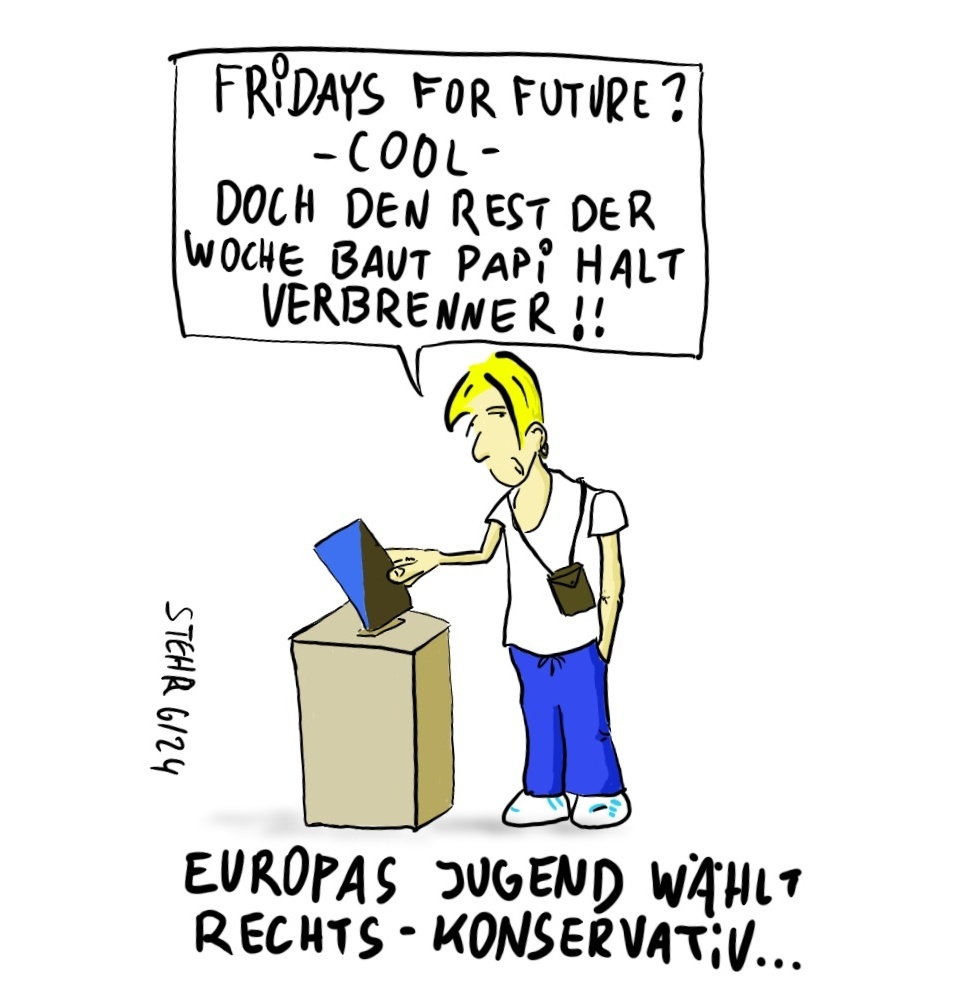 FRiDAYS FOR FUTURE?
-COOL-
DOCH DEN REST DER
WOCHE BAUT PAPi HALT
VERBRENNER!!
STEHR 6/24
EUROPAS JUGEND WÄHLT
RECHTS-KONSERVATiV...